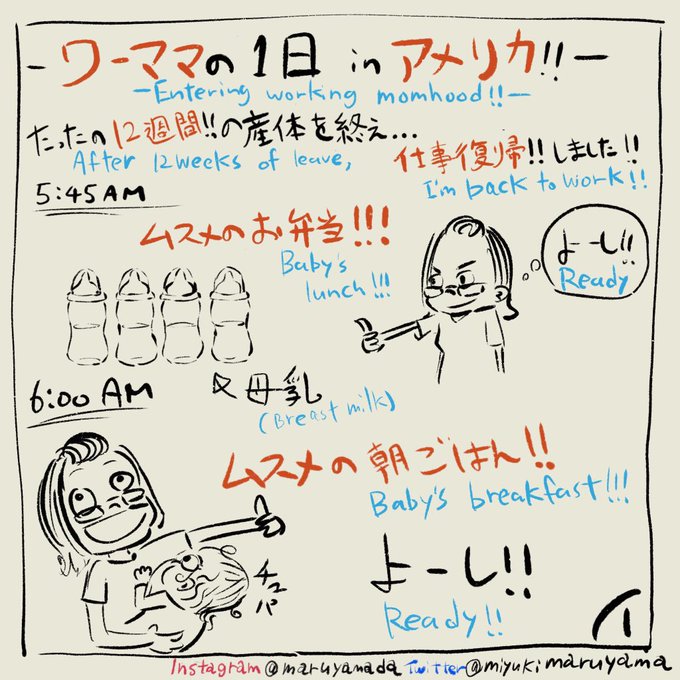 - ワーママの1日 in アメリカ!! -
- Entering working momhood!! -
たったの12週間!!の産体を終え...
After 12weeks of leave,
仕事復帰!!しました!!
I'm back to work!!
5:45AM
ムスメのお弁当!!!
Baby's
lunch!!!
よーし!!
Ready
母乳
(Breast milk)
6:00 AM
ムスメの朝ごはん!!
Baby's breakfast!!!
チュパ
よーし!!
Ready!!
1
Instagram @maruyamada Twitter@miyukimaruyama